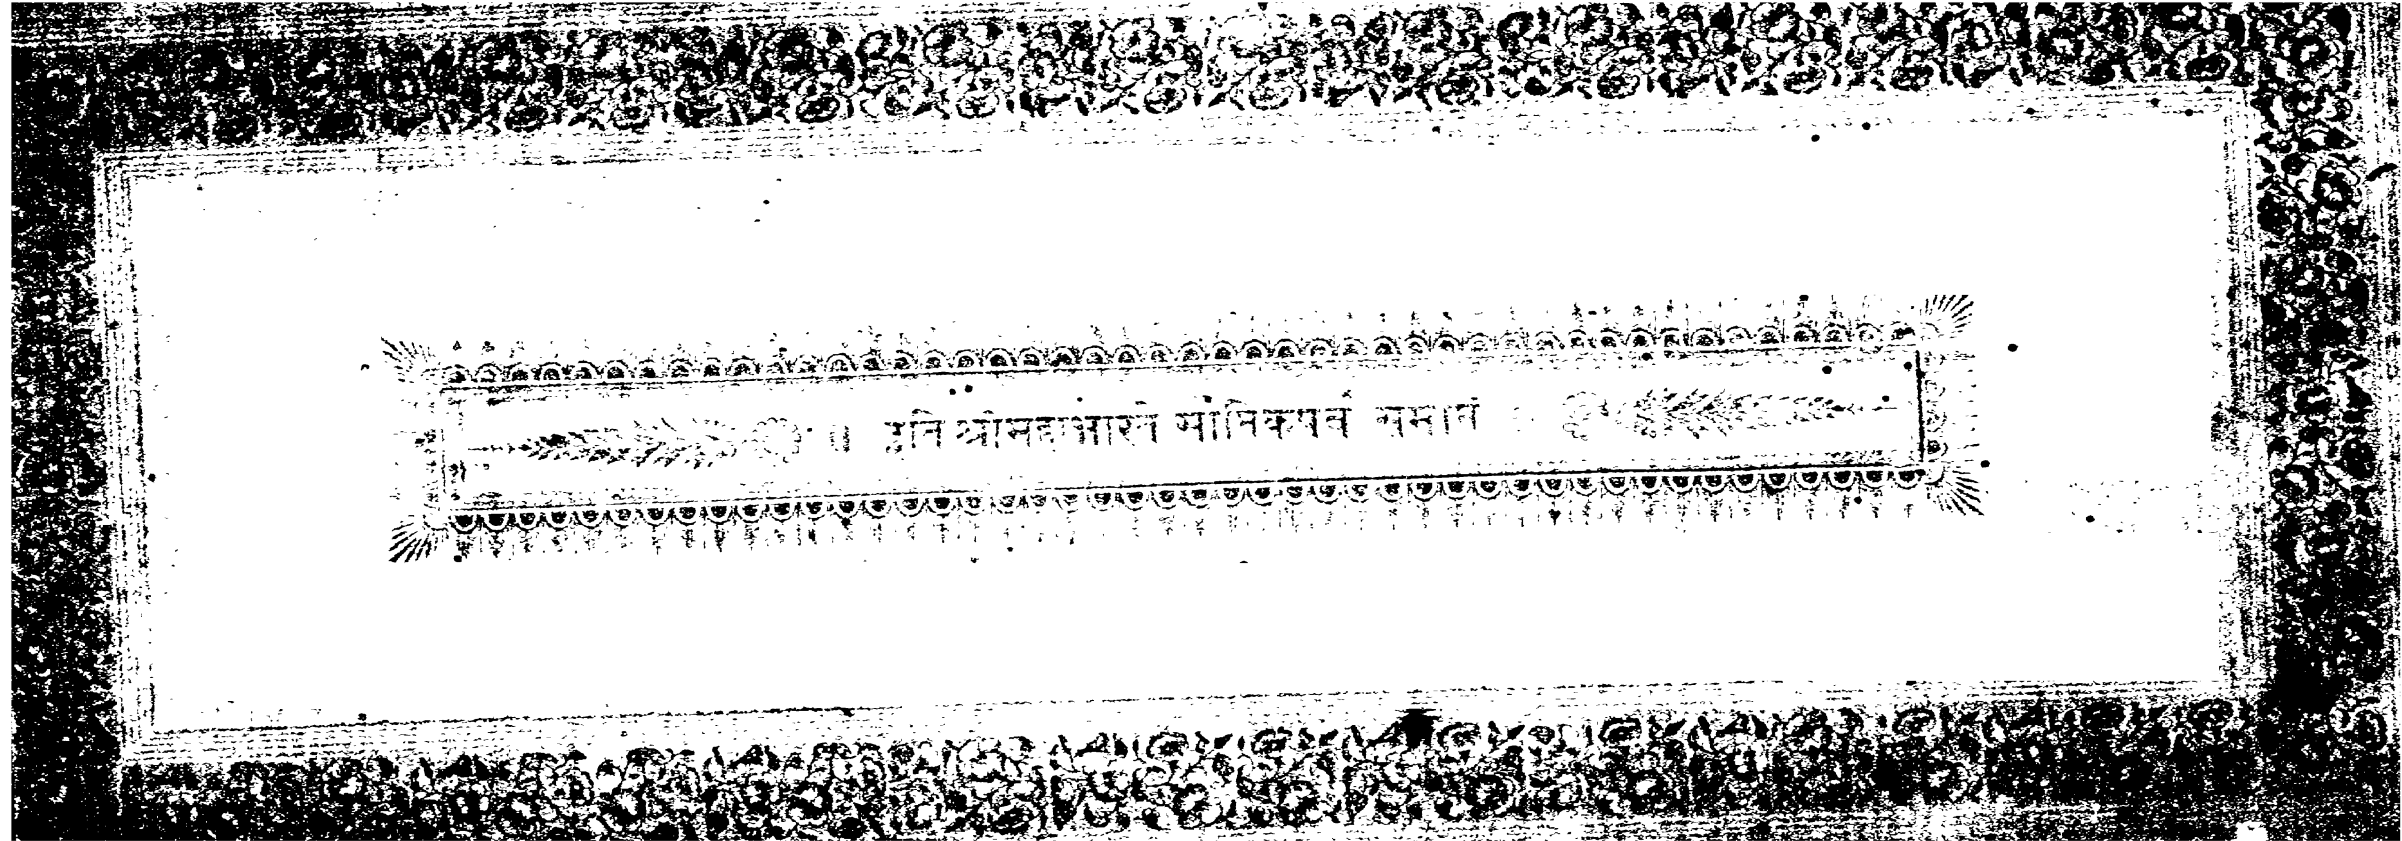 ॥ इति श्रीमहाभारते सौप्तिकपर्व समाप्तं ॥